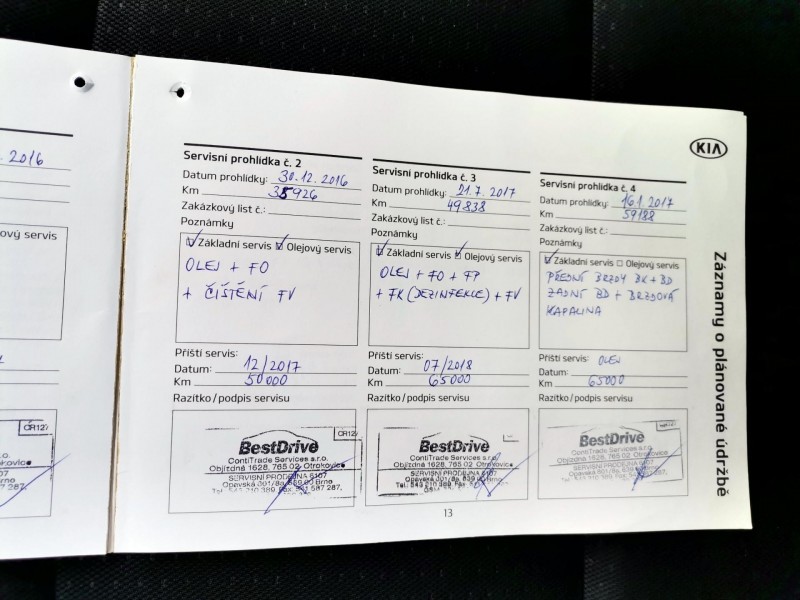 . 2016
ový servis
ČR127
s.r.o.
Otrokovice
5107
Brno
587 287,
KIA
Záznamy o plánované údržbě
Servisní prohlídka č. 2
Datum prohlídky: 30.12.2016
Km 35926
Zakázkový list č.:
Poznámky
Základní servis Olejový servis
OLEJ + FO
+ ČIŠTĚNÍ FV
Příští servis:
Datum: 12/2017
Km 50000
Razítko/podpis servisu
ČR127
BestDrive
ContiTrade Services s.r.o.
Objízdná 1628, 765 02 Otrokovice
SERVISNÍ PRODEJNA 5107
Opavská 001/8a, 639 00 Brno
Servisní prohlídka č. 3
Datum prohlídky: 21.7.2017
Km 49838
Zakázkový list č.:
Poznámky
Základní servis Olejový servis
OLEJ + FO + FP
+ FK (DEZINFEKCE) + FV
Příští servis:
Datum: 07/2018
Km 65000
Razítko/podpis servisu
BestDrive
ContiTrade Services s.r.o.
Objízdná 1628, 765 02 Otrokovice
SERVISNÍ PRODEJNA 5107
Opavská 001/8a, 639 00 Brno
Servisní prohlídka č. 4
Datum prohlídky: 16.1.2017
Km 59188
Zakázkový list č.:
Poznámky
Základní servis Olejový servis
PŘEDNÍ BRZDY BK + BD
ZADNÍ BD + BRZDOVÁ
KAPALINA
Příští servis: OLEJ
Datum:
Km 65000
Razítko/podpis servisu
BestDrive
ContiTrade Services s.r.o.
Objízdná 1628, 765 02 Otrokovice
SERVISNÍ PRODEJNA 5107
13